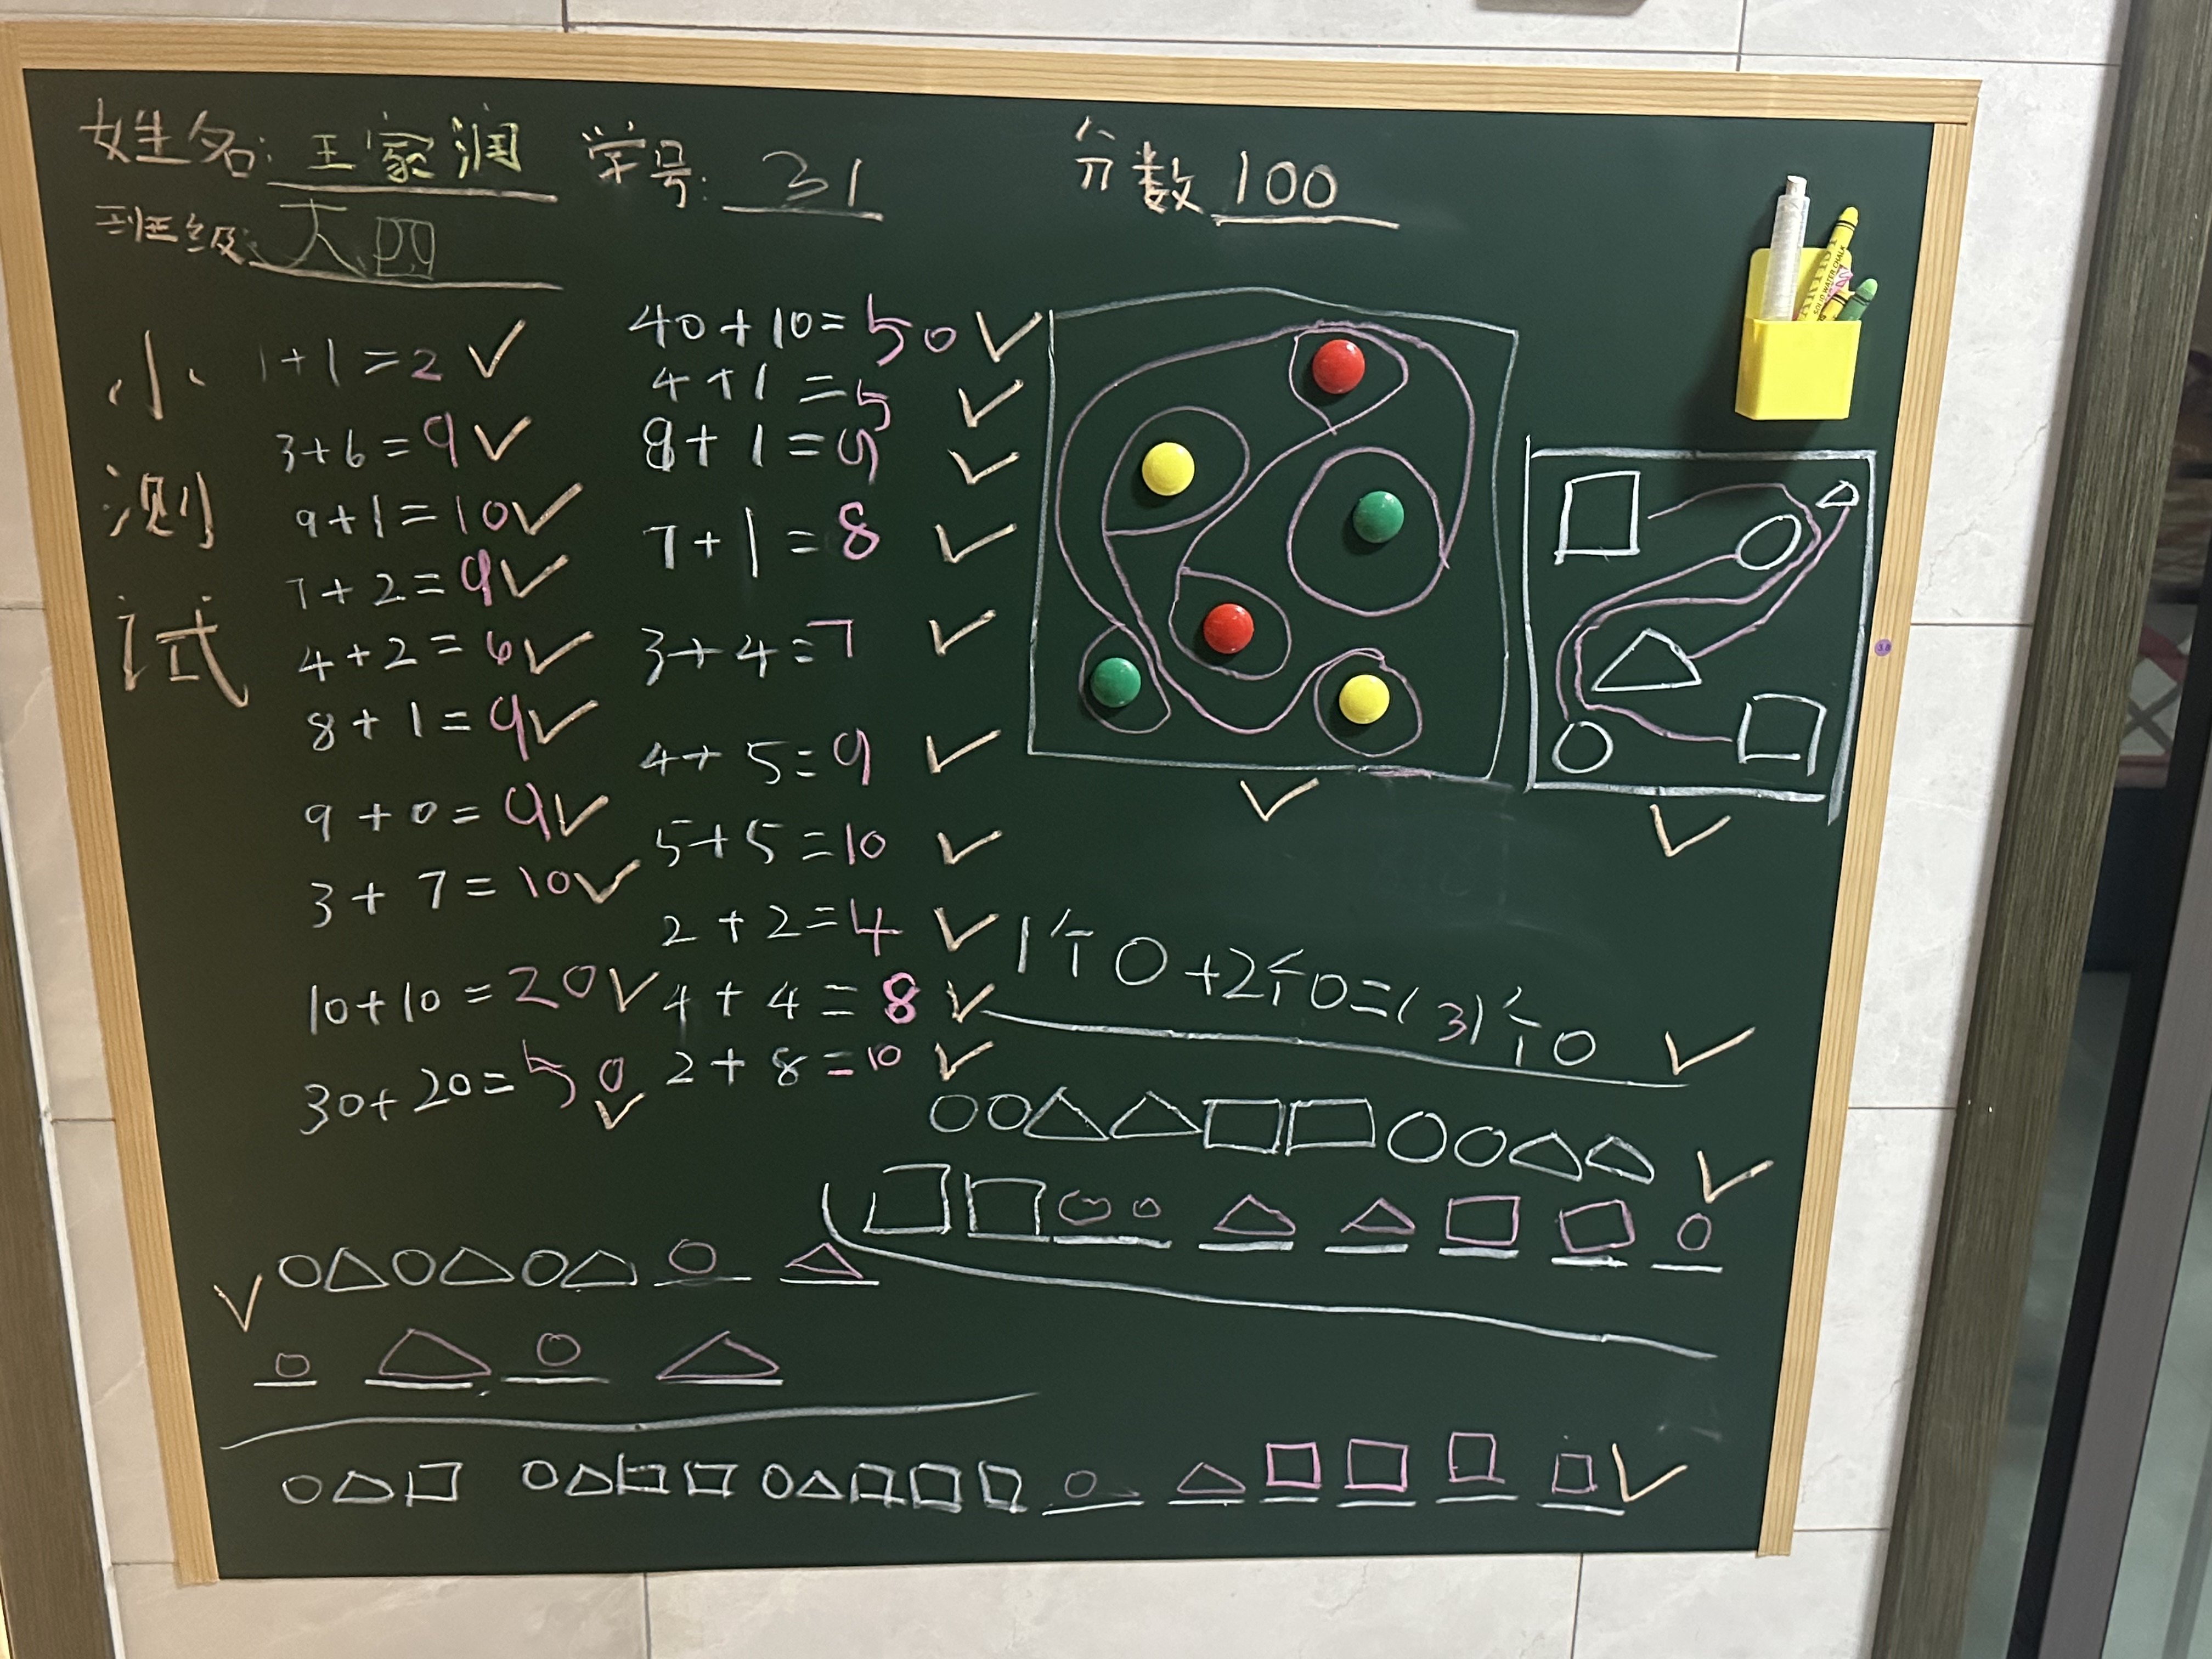 姓名: 王家润 学号: 31 分数 100
班级: 大四
小测试
1+1=2 ✓
3+6=9 ✓
9+1=10 ✓
7+2=9 ✓
4+2=6 ✓
8+1=9 ✓
9+0=9 ✓
3+7=10 ✓
10+10=20 ✓
30+20=50 ✓
40+10=50 ✓
4+1=5 ✓
8+1=9 ✓
7+1=8 ✓
3+4=7 ✓
4+5=9 ✓
5+5=10 ✓
2+2=4 ✓
4+4=8 ✓
2+8=10 ✓
1个○+2个○=(3)个○ ✓
○○△△□□○○△△ ✓
□□○○△△□□○
○△○△○△○△
○△○△
○△□ ○△□□ ○△□□□○△□□□□ ✓